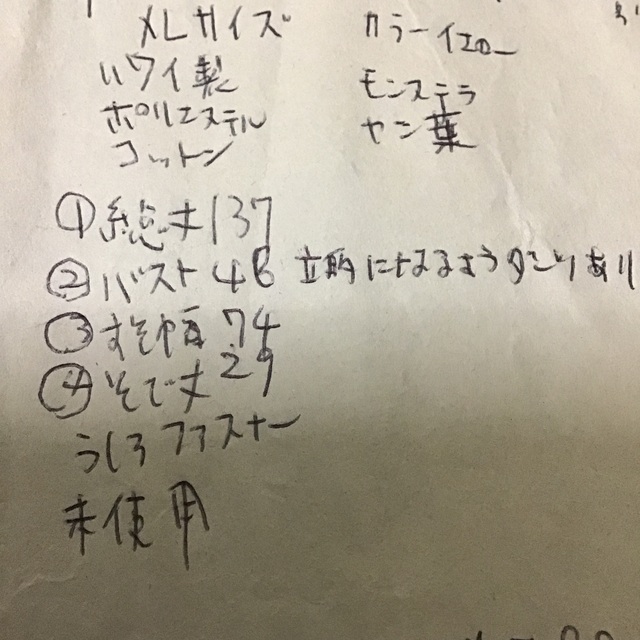 XLサイズ カラーイエロー
ハワイ製 モンステラ
ポリエステル ヤシ葉
コットン
①総丈137
②バスト46 立的になるよう タこりあり
③すそ幅 74
④そで丈 29
うしろファスナー
未使用